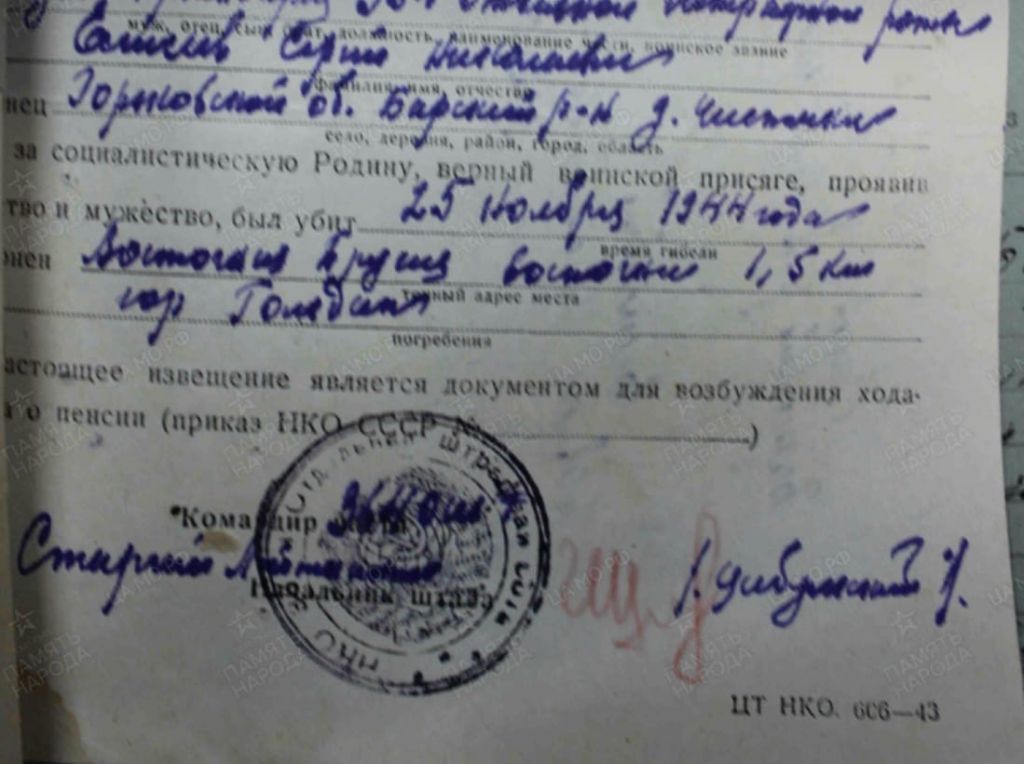 Отдельной штрафной роты
муж, отец, сын, брат, должность, наименование части, воинское звание
Сергей Николаевич
фамилия, имя, отчество
нец Горьковской об. Барский р-н д.
село, деревня, район, город, область
за социалистическую Родину, верный воинской присяге, проявив
тво и мужество, был убит 25 ноября 1944 года
время гибели
Восточная Пруссия восточнее 1,5 км
гор Гольдап
точный адрес места
погребения
астоящее извещение является документом для возбуждения хода-
а о пенсии (приказ НКО СССР № )
Отдельная штрафная рота
НКО
Командир части
Старший Лейтенант
Начальник штаба
ЦТ НКО. 606—43
ПАМЯТЬ НАРОДА
ЦАМО.РФ